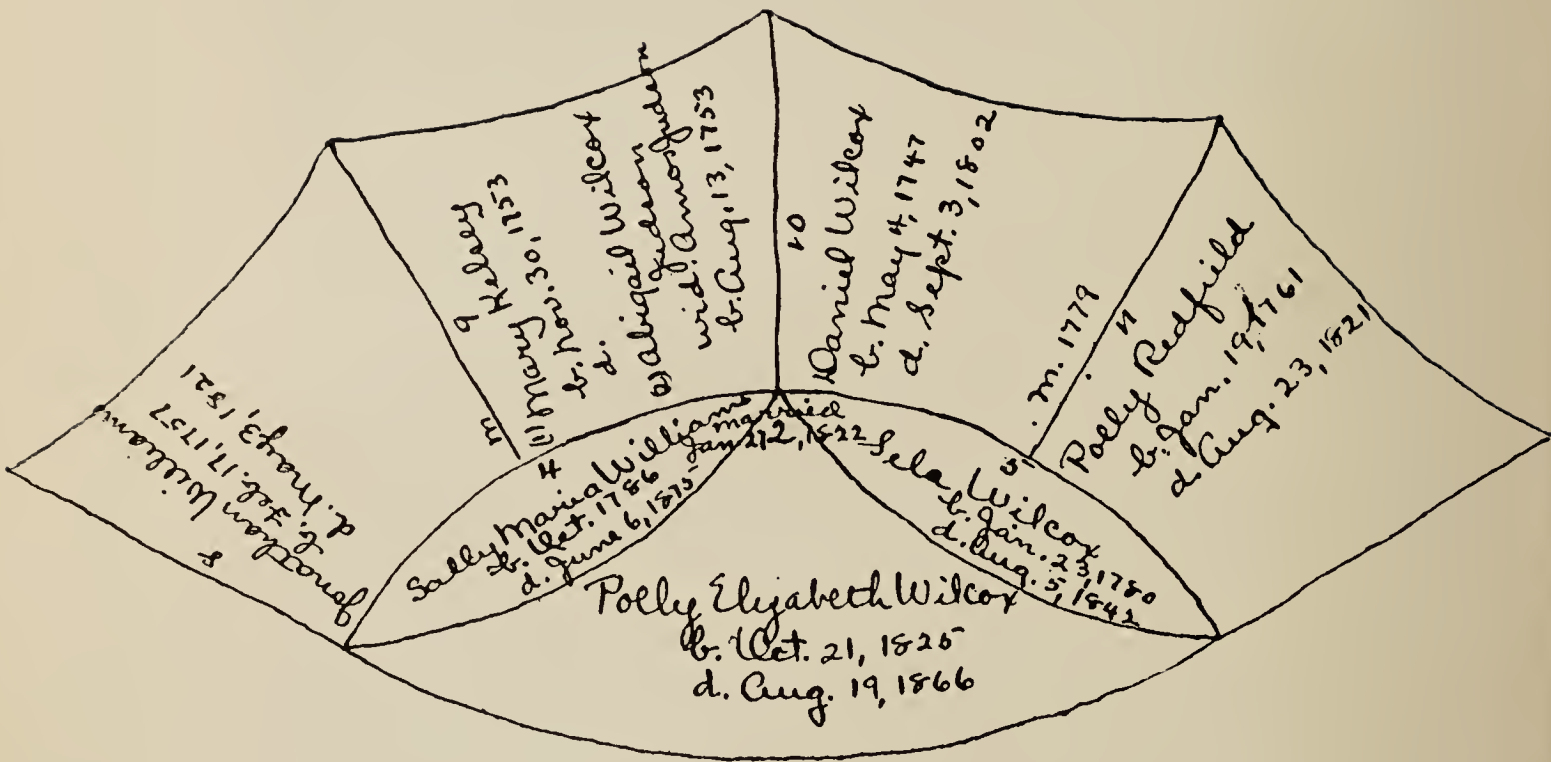 8
Jonathan Williams
b. Feb. 17, 1757
d. May 3, 1821
m
9
Kelsey
(1) Mary
b. Nov. 30, 1753
d.
(2) Abigail Wilcox
Judson
wid. Amos Judson
b. Aug. 13, 1753
10
Daniel Wilcox
b. May 4, 1747
d. Sept. 3, 1802
m. 1779
11
Polly Redfield
b. Jan. 19, 1761
d. Aug. 23, 1821
4
Sally Maria Williams
b. Oct. 1786
d. June 6, 1875
married
Jan 22, 1822
5
Sela Wilcox
b. Jan. 23, 1780
d. Aug. 5, 1842
Polly Elizabeth Wilcox
b. Oct. 21, 1825
d. Aug. 19, 1866